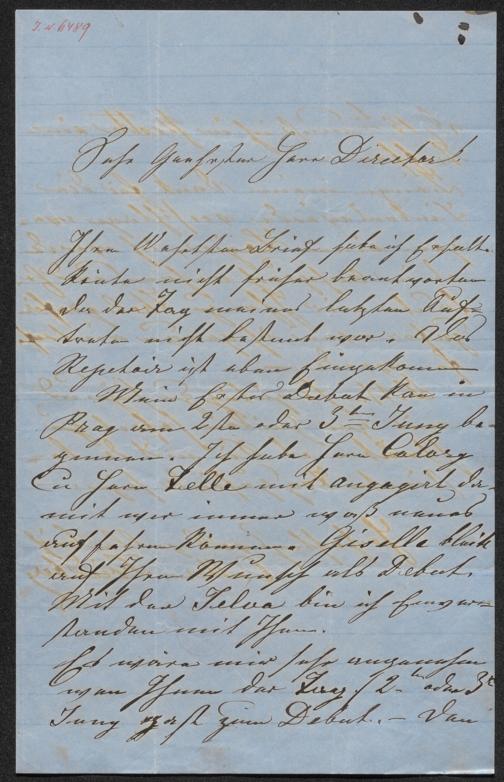 J.N. 6489
Sehr Geehrter Herr Director!
Ihren Wehrtten Brief habe ich Erhalt.
Konte nicht früher beantworten
da der Tag meines letzten Auf-
treten nicht bestimt war. Das
Repetoir ist eben Eingekomen
Mein Erstes Debut kan in
Prag am 2ten oder 3ten Juny be-
ginnen. Ich habe Herr Calory
Cu Herr Zelle mit angagirt da-
mit wir immer was neues
aufführen können. Giselle bleibt
auf Ihren Wunsch als Debut.
Mit der Jelva bin ich Einver-
standen mit Ihnen.
Es wäre mir sehr angenehm
wen Ihnen der Tag 2ten oder 3t
Juny past zum Debut. – Den